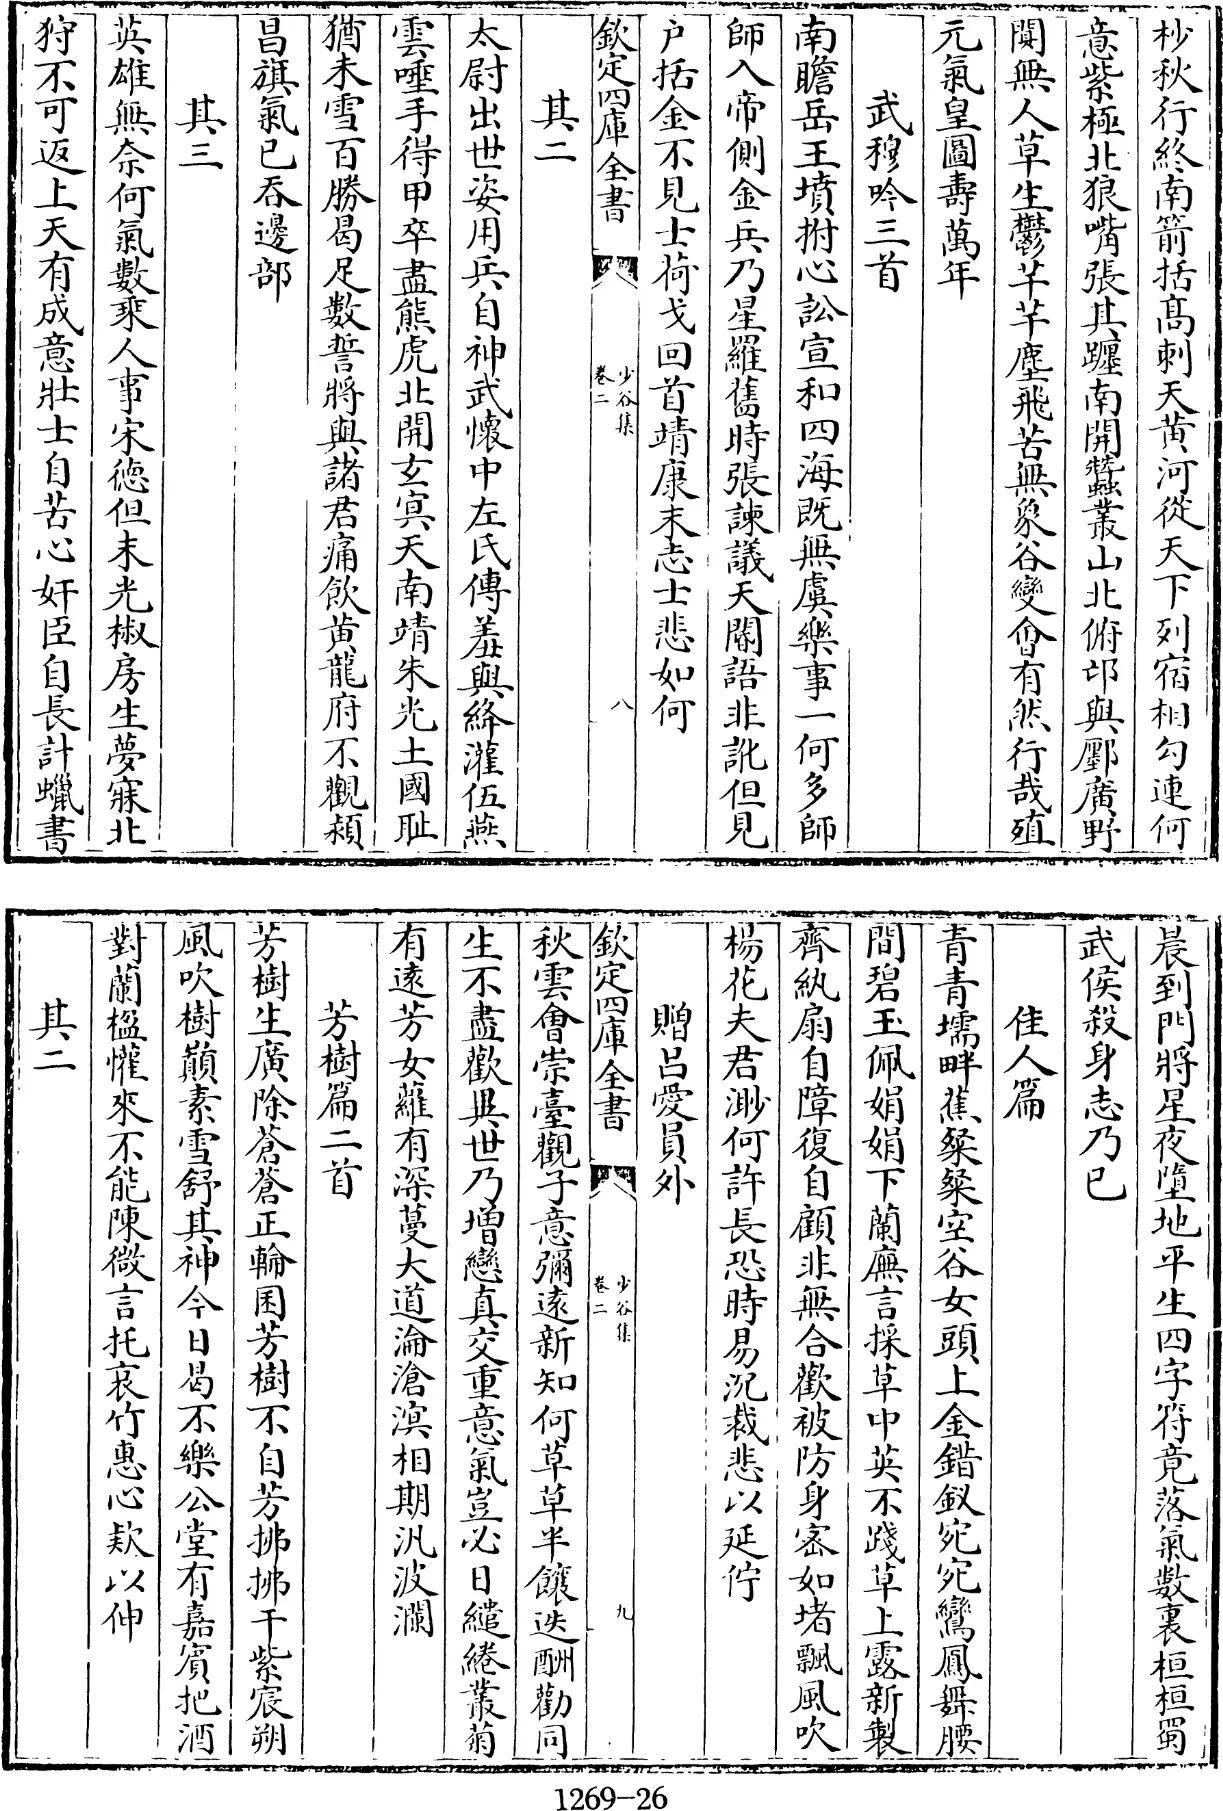 杪秋行終南箭括高刺天黄河從天下列宿相勾連何
意紫極北狼嘴張其躔南開蠶叢山北俯邙與酆廣野
闃無人草生鬱芊芊塵飛苦無象谷變會有然行哉殖
元氣皇圖壽萬年
武穆吟三首
南瞻岳王墳拊心訟宣和四海既無虞樂事一何多師
師入帝側金兵乃星羅舊時張諫議天閽語非訛但見
户括金不見士荷戈回首靖康末志士悲如何
欽定四庫全書
少谷集
卷二
八
其二
太尉出世姿用兵自神武懷中左氏傳羞與絳灌伍燕
雲唾手得甲卒盡熊虎北開玄冥天南靖朱光土國耻
猶未雪百勝曷足數誓將與諸君痛飲黄龍府不觀頳
昌旗氣已吞邊部
其三
英雄無奈何氣數乘人事宋德但末光椒房生夢寐北
狩不可返上天有成意壯士自苦心奸臣自長計蠟書
晨到門將星夜墮地平生四字符竟落氣數裏桓桓蜀
武侯殺身志乃已
佳人篇
青青壖畔蕉粲粲空谷女頭上金錯釵宛宛鸞鳳舞腰
間碧玉佩娟娟下蘭廡言採草中英不踐草上露新製
齊紈扇自障復自顧非無合歡被防身密如堵飄風吹
楊花夫君渺何許長恐時易沉裁悲以延佇
贈吕愛員外
欽定四庫全書
少谷集
卷二
九
秋雲會崇臺觀子意彌遠新知何草草半饟迭酬勸同
生不盡歡異世乃增戀真交重意氣豈必日繾綣叢菊
有遠芳女蘿有深蔓大道淪滄溟相期汎波瀾
芳樹篇二首
芳樹生廣除蒼蒼正輪囷芳樹不自芳拂拂干紫宸朔
風吹樹巔素雪舒其神今日曷不樂公堂有嘉賓把酒
對蘭楹懽來不能陳微言托哀竹惠心欵以伸
其二
1269-26